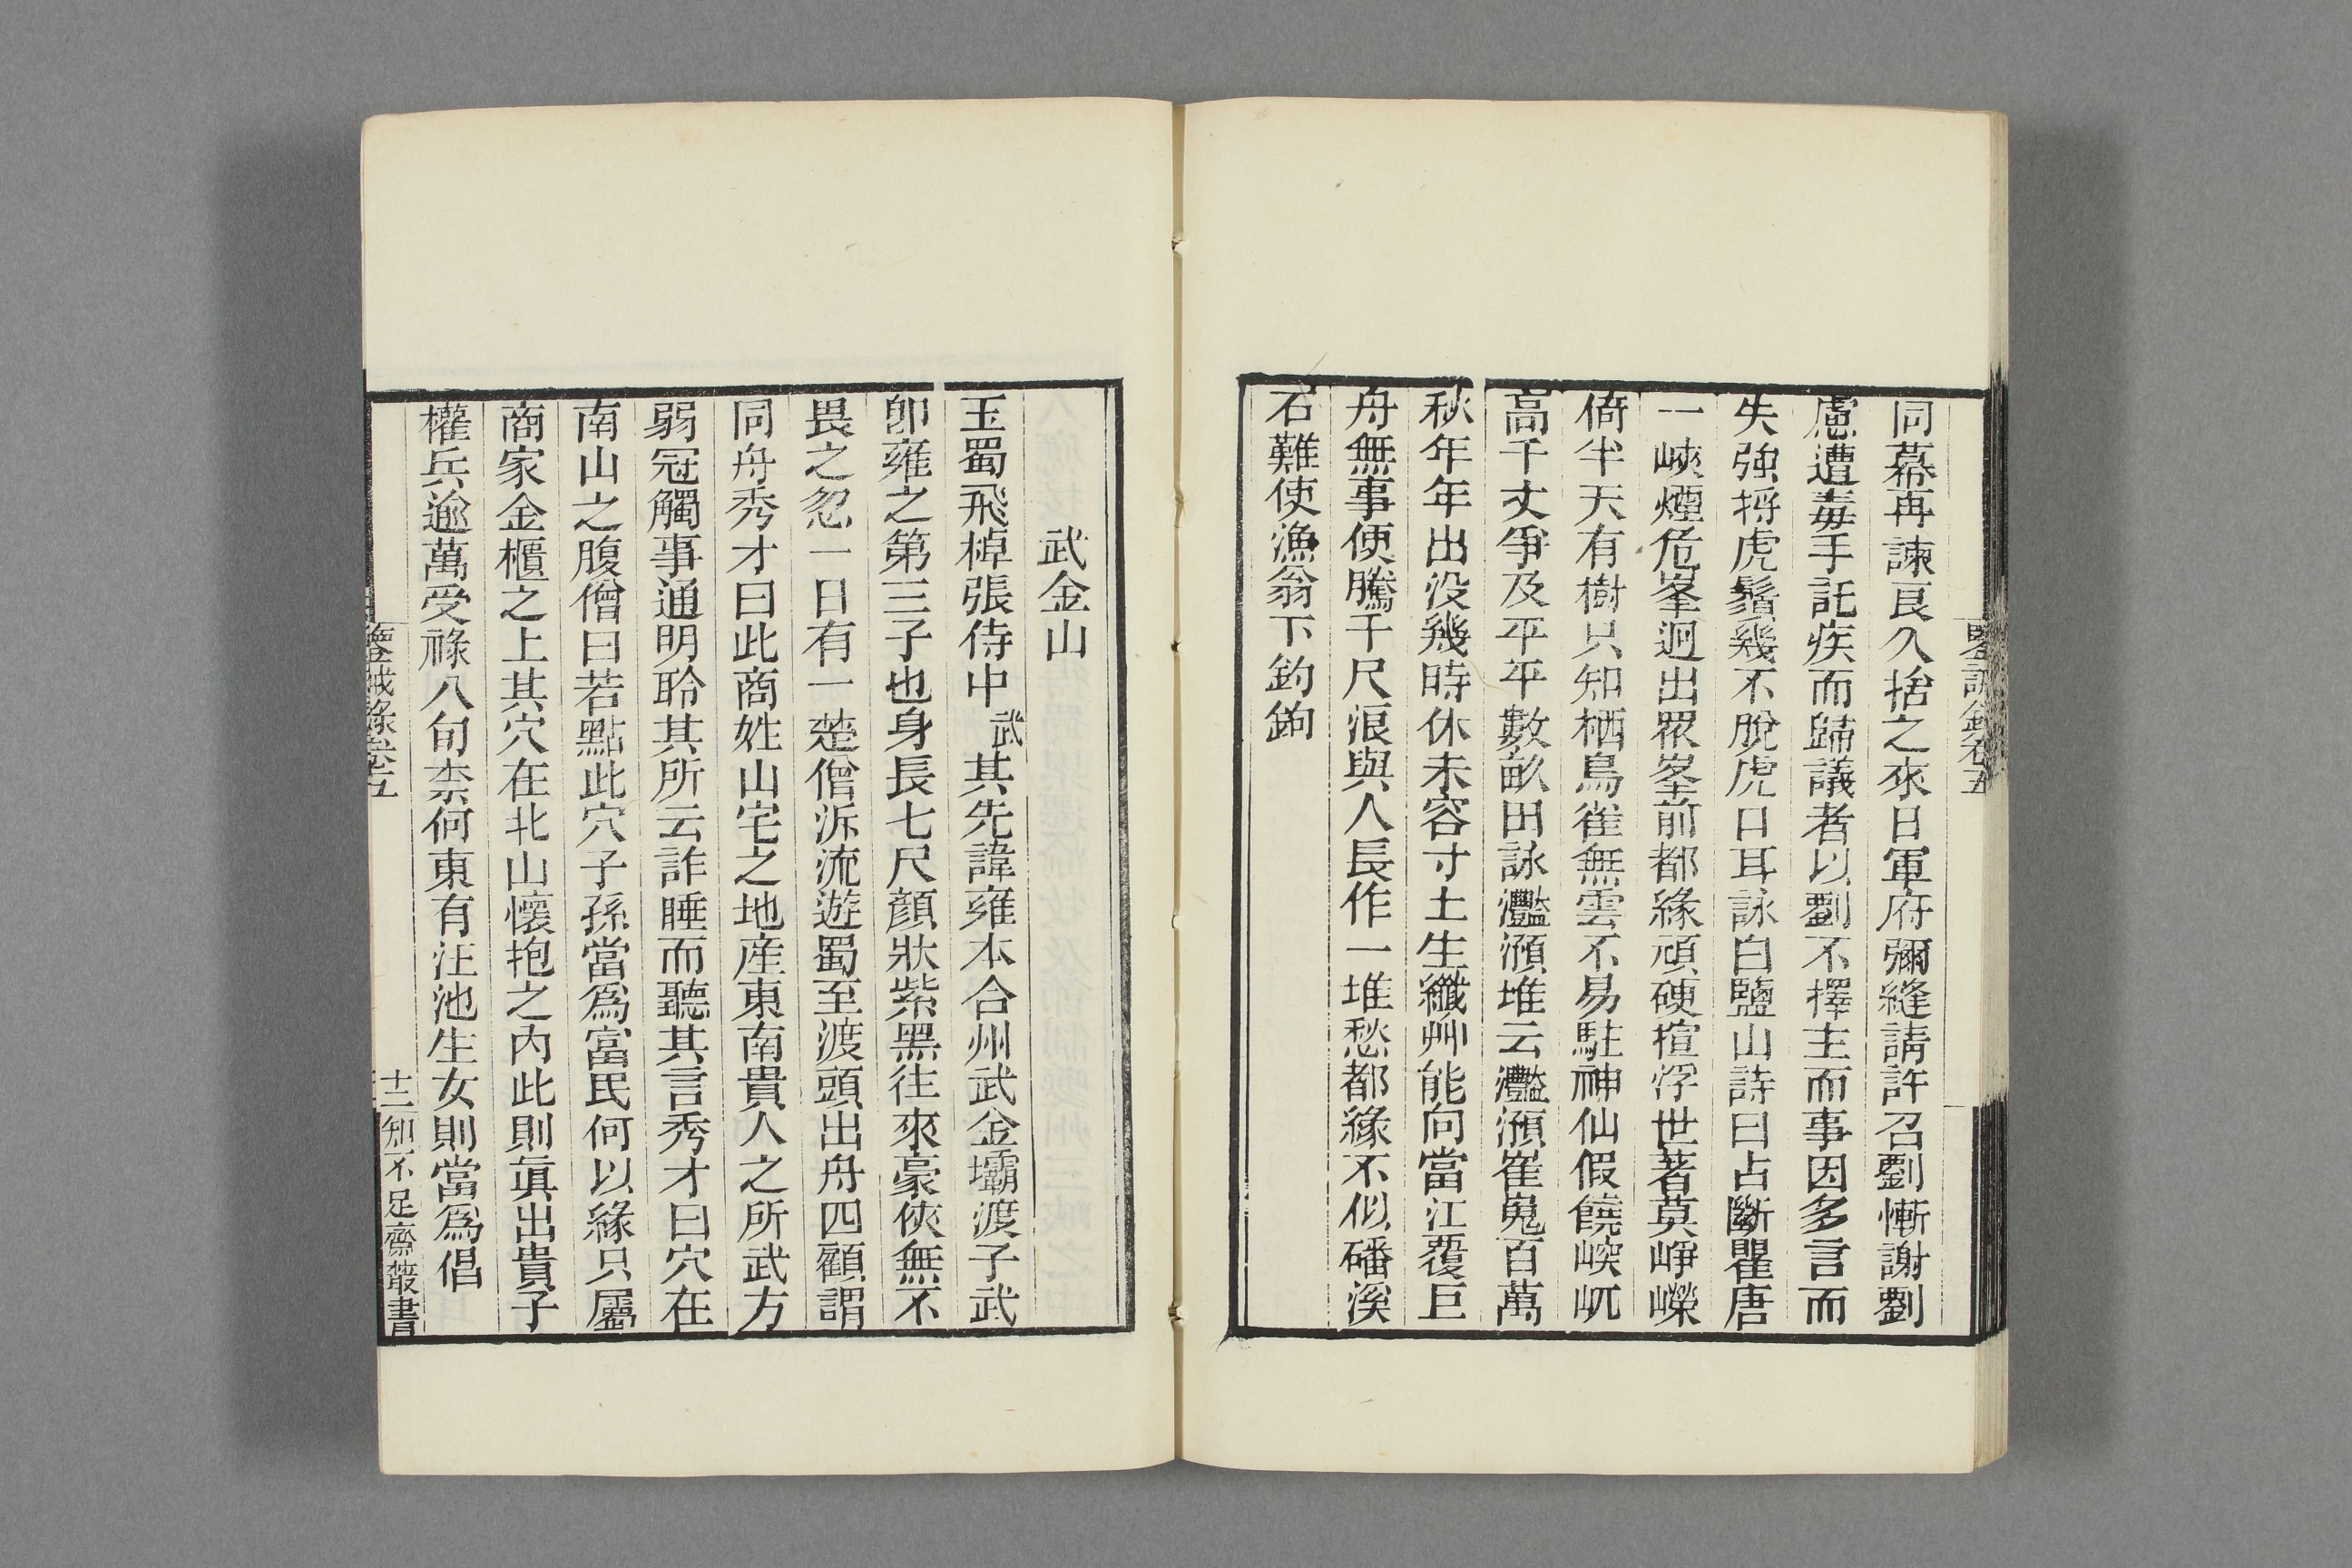 鑒誡錄卷五
同幕再諫良久捨之來日軍府彌縫請許召劉慚謝劉
慮遭毒手託疾而歸議者以劉不擇主而事因多言而
失強捋虎鬚幾不脫虎口耳詠白鹽山詩曰占斷瞿唐
一峽煙危峯迥出眾峯前都緣頑硬揎浮世著莫崢嶸
倚半天有樹只知栖鳥雀無雲不易駐神仙假饒峻屼
高千丈爭及平平數畝田詠灩澦堆云灩澦崔嵬百萬
秋年年出沒幾時休未容寸土生纖艸能向當江覆巨
舟無事便騰千尺浪與人長作一堆愁都緣不似磻溪
石難使漁翁下釣鉤
武金山
玉蜀飛棹張侍中武其先諱雍本合州武金壩渡子武
卽雍之第三子也身長七尺顏狀紫黑往來豪俠無不
畏之忽一日有一楚僧泝流遊蜀至渡頭出舟四顧謂
同舟秀才曰此商姓山宅之地産東南貴人之所武方
弱冠觸事通明聆其所云詐睡而聽其言秀才曰穴在
南山之腹僧曰若點此穴子孫當爲富民何以緣只屬
商家金櫃之上其穴在北山懷抱之內此則眞出貴子
權兵逾萬受祿八旬柰何東有汪池生女則當爲倡
鑒誡錄卷五
十二
知不足齋叢書